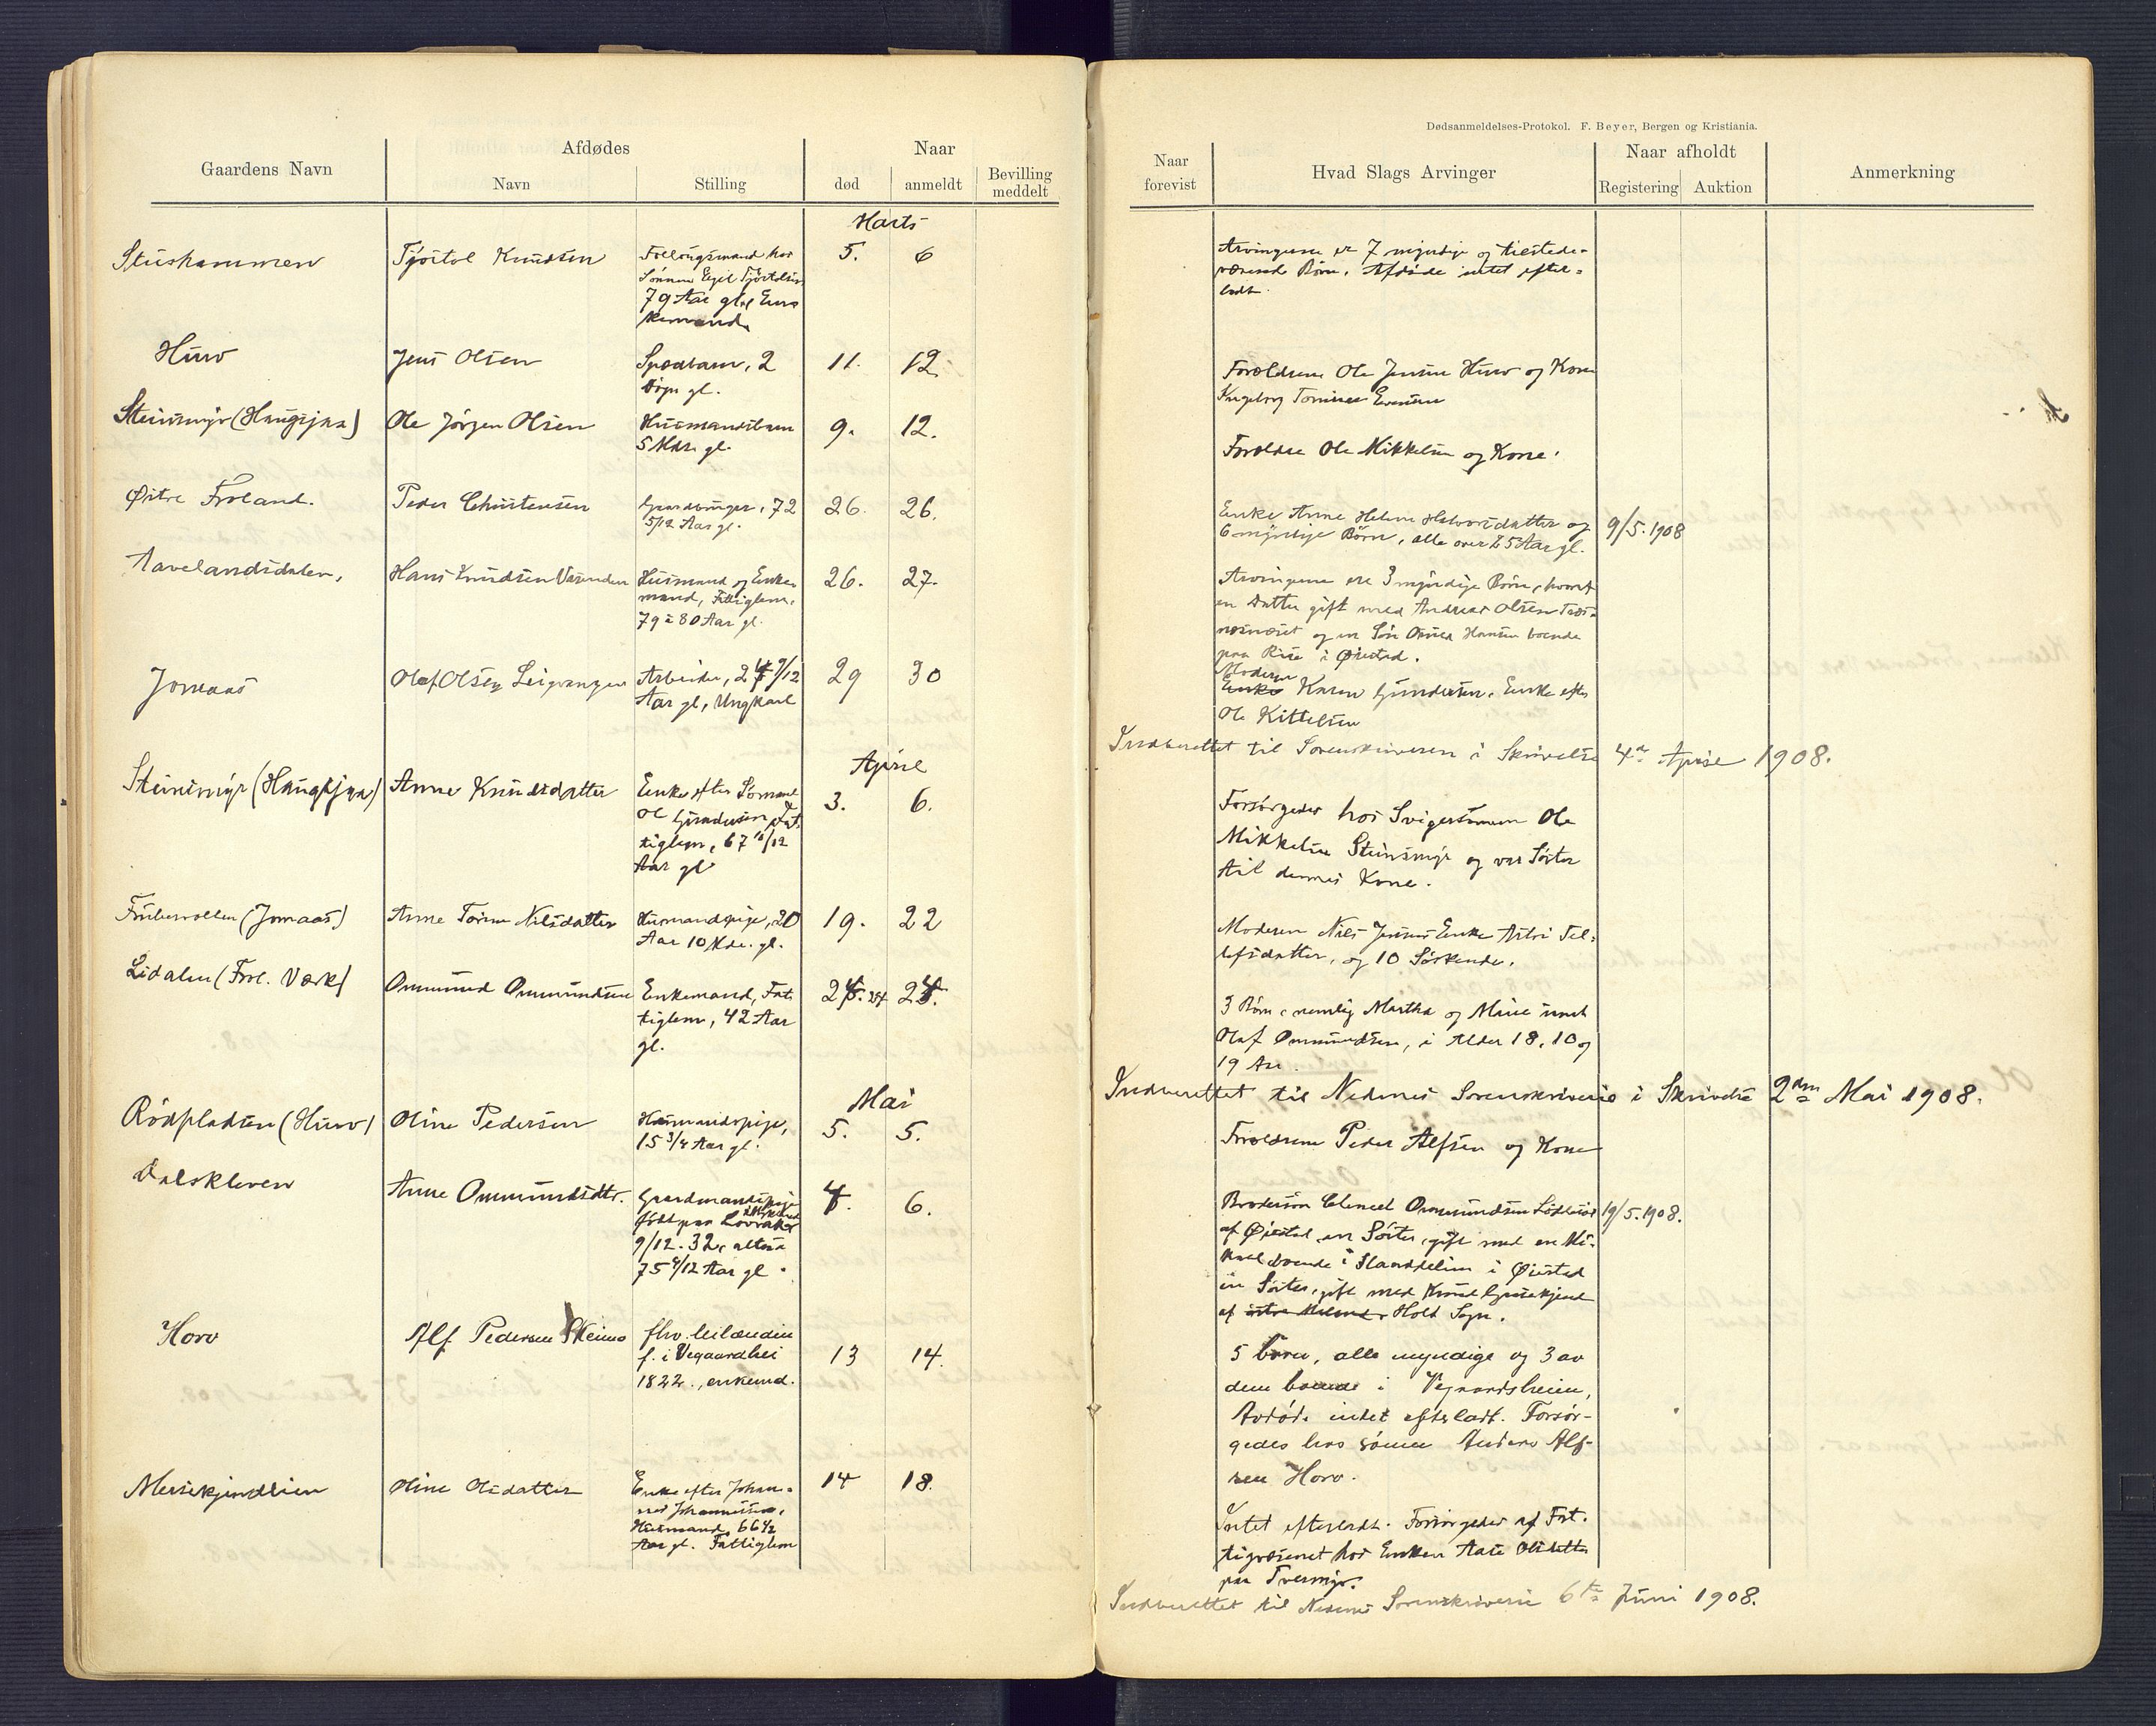 Dødsanmeldelses-Protokol. F. Beyer, Bergen og Kristiania.
Gaardens Navn
Afdødes
Navn
Stilling
Naar
død
anmeldt
Bevilling
meddelt
Naar
forevist
Hvad Slags Arvinger
Naar afholdt
Registering
Auktion
Anmerkning
Marts
Stushammeren
Tjöstol Knudsen
Follougsmand hos
Sønnen Egil Tjöstolsen
79 Aar gl, Enke
mand
5.
6
Arvingerne er 7 myndige og tilstede-
værende Børn. Afdøde intet efter-
ladt.
Huro
Jens Olsen
Spædbarn, 2
Døgn gl.
11.
12.
Forældrene Ole Jensen Huro og Kone
Ingeborg Tomine
Steinsmyr (Haugsjaa)
Ole Jørgen Olsen
Husmandsbarn
5 Mdr. gl.
9.
12.
Forældre Ole Mikkelsen og Kone.
Østre Froland.
Peder Christensen
Gaardbruger, 72
5/12 Aar gl.
26.
26.
Enke Anne Helene Halvorsdatter og
6 myndige Børn, alle over 25 Aar gl.
9/5. 1908
Aavelandsdalen,
Hans Knudsen
Husmand og Enke
mand, Fattiglem,
79 à 80 Aar gl.
26.
27.
Arvingerne ere 3 myndige Børn, hvoraf
en Datter gift med Andreas Olsen Træs-
næsnæset og en Søn Hansen boende
paa Rise i Øiestad.
Jomaas
Olaf Olsen
Arbeider, 24 9/12
Aar gl, Ungkarl
29
30
Moderen
Enke Karen Gundersen, Enke efter
Ole Kittelsen
Indberettet til Sorenskriveren i Skrivelse 4de April 1908.
April
Steinsmyr (Haugsjaa)
Anne Knudsdatter
Enke efter Sømand
Ole Gundersen, Fat-
tiglem, 67 10/12
Aar gl
3.
6.
Forsørgedes hos Svigersønnen Ole
Mikkelsen Steinsmyr og var Søster
til dennes Kone.
(Jomaas)
Anne Torine Nilsdatter
Husmandspige, 20
Aar 10 Mdr. gl.
19.
22
Moderen Nils Jensens Enke Astri Tel-
lefsdatter, og 10 Søskende.
Lidalen (Frol. Værk)
Ommund Ommundsen
Enkemand, Fat-
tiglem, 42 Aar
gl.
24. 24/4
24.
3 Børn, nemlig Martha og Marie samt
Olaf Ommundsen, i Alder 18, 10 og
19 Aar.
Indberettet til Nedenes Sorenskriveri i Skrivelse 2den Mai 1908.
Mai
Rödpladsen (Huro)
Oline Pedersen
Husmandspige,
15 3/4 Aar gl.
5.
5.
Forældrene Peder Alfsen og Kone
Dalskleven
Anne Ommundsdtr.
Gaardmandspige
født paa Lovraker
9/12. 32, altsaa
75 4/12 Aar gl.
4.
6.
Broderen Clemet Ommundsen
af Øiestad, en Søster, gift med en Mi-
kael boende i i Øiestad
en Søster, gift med Knud
af Holt Sogn.
19/5. 1908.
Horv
Alf Pedersen Skeimo
fhv. leilænding
f. i Vegaardshei
1822., enkemd.
13
14.
5 børn, alle myndige og 3 av
dem boende i Vegaardsheien,
Avdøde intet efterladt. Forsør-
gedes hos sønnen Anders Alf-
sen Horv.
Messekjendlien
Oline Olsdatter
Enke efter Johan-
nes Johannessen,
Husmand, 66 1/2
Aar gl. Fattiglem
14
18.
Intet efterladt. Forsørgedes af Fat-
tigvæsenet hos Enken Aase Olsdatter
paa Tveramyr.
Indberettet til Nedenes Sorenskriveri 6te Juni 1908.